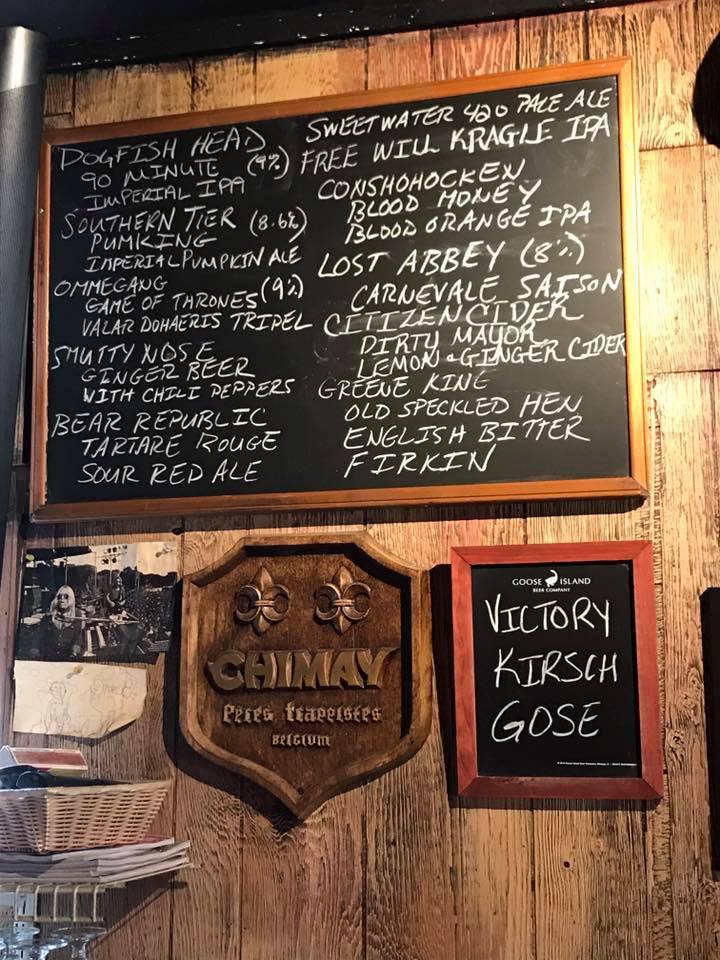 DOGFISH HEAD
90 MINUTE (9%)
IMPERIAL IPA
SOUTHERN TIER (8.6%)
PUMKING
IMPERIAL PUMPKIN ALE
OMMEGANG
GAME OF THRONES (9%)
VALAR DOHAERIS TRIPEL
SMUTTY NOSE
GINGER BEER
WITH CHILI PEPPERS
BEAR REPUBLIC
TARTARE ROUGE
SOUR RED ALE
SWEETWATER 420 PALE ALE
FREE WILL KRAGLE IPA
CONSHOHOCKEN
BLOOD MONEY
BLOOD ORANGE IPA
LOST ABBEY (8%)
CARNEVALE SAISON
CITIZEN CIDER
DIRTY MAYOR
LEMON-GINGER CIDER
GREENE KING
OLD SPECKLED HEN
ENGLISH BITTER
FIRKIN
CHIMAY
Pères trappistes
BELGIUM
GOOSE ISLAND
BEER COMPANY
VICTORY
KIRSCH
GOSE